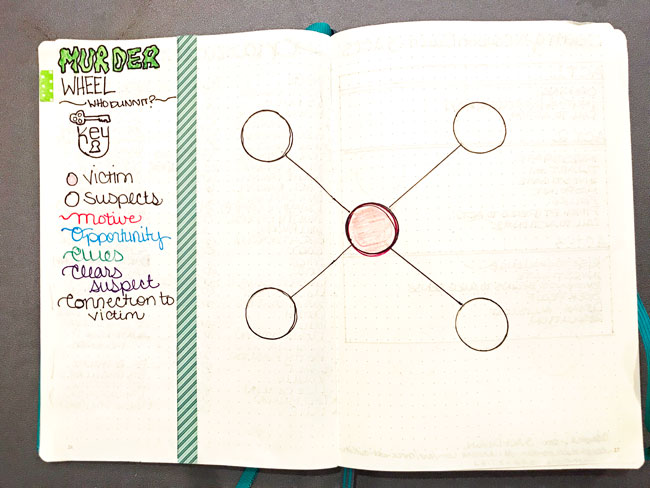 MURDER
WHEEL
WHODUNNIT?
Key
Victim
Suspects
Motive
Opportunity
Clues
Clears
suspect
Connection to
victim